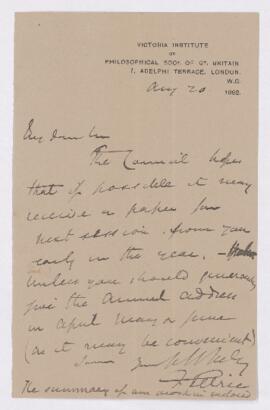 VICTORIA INSTITUTE
OR
PHILOSOPHICAL SOCY. OF GT. BRITAIN
7, ADELPHI TERRACE, LONDON.
W.C.
Aug 20 1892.
My dear Sir
The Council hopes
that if possible it may
receive a paper for
next session from you
early in the year. –
Unless you should
give the Annual address
in April May or June
(as it may be convenient)
F Petrie
The summary of an address enclosed